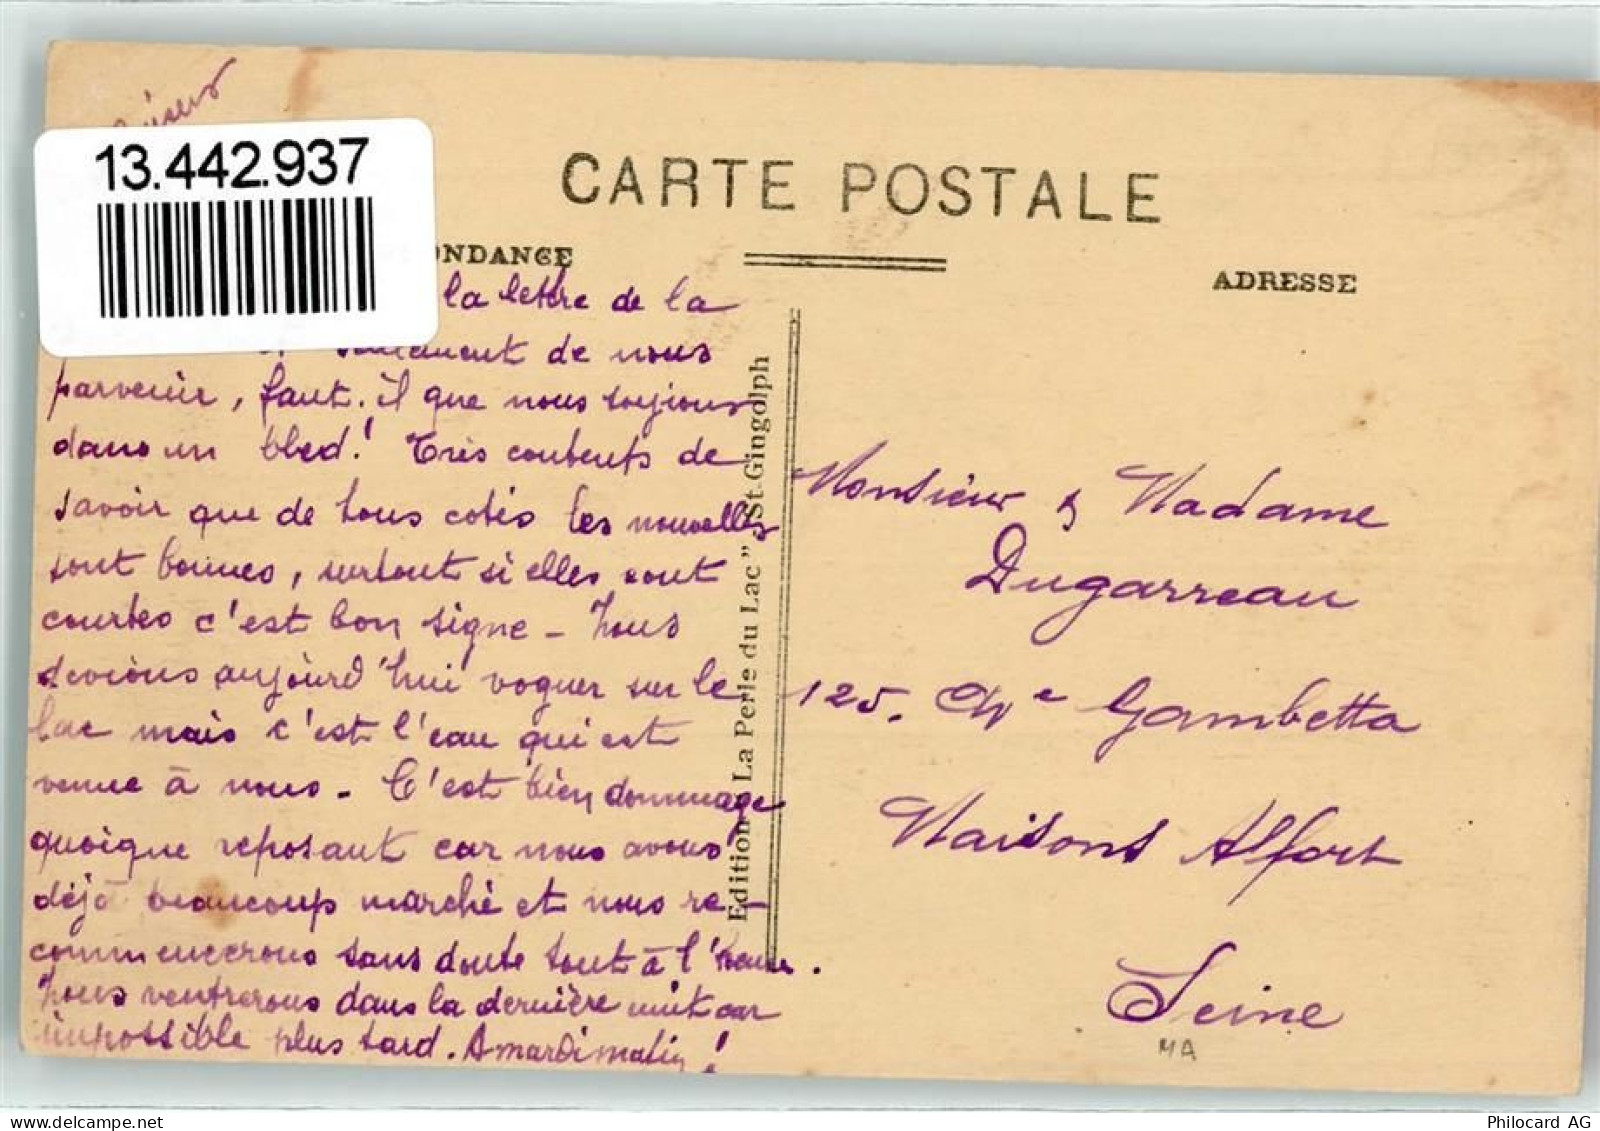 13.442.937
CARTE POSTALE
ONDANCE
ADRESSE
la lettre de la
seulement de nous
parvenir, faut-il que nous soyions
dans un bled! Très contents de
savoir que de tous cotés les nouvelles
sont bonnes, surtout si elles sont
courtes c'est bon signe - Nous
devions aujourd'hui voguer sur le
lac mais c'est l'eau qui est
venue à nous. C'est bien dommage
quoique reposant car nous avons
déjà beaucoup marché et nous re-
commencerons sans doute tout à l'heure.
Nous rentrerons dans la dernière nuit car
impossible plus tard. A mardi matin!
Edition "La Perle du Lac" St-Gingolph
Monsieur & Madame
Dugarreau
125. Gambetta
Maisons Alfort
Seine
MA
Philocard AG